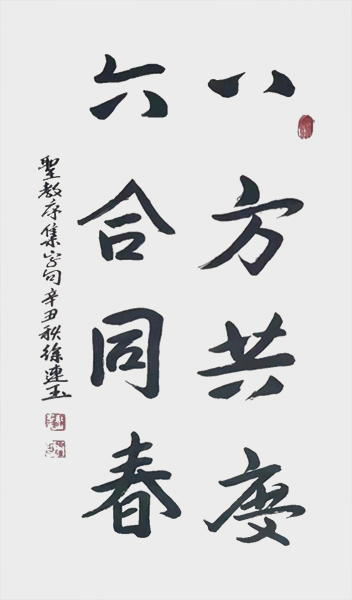 八方共慶
六合同春
聖教序集字句辛丑秋徐連玉